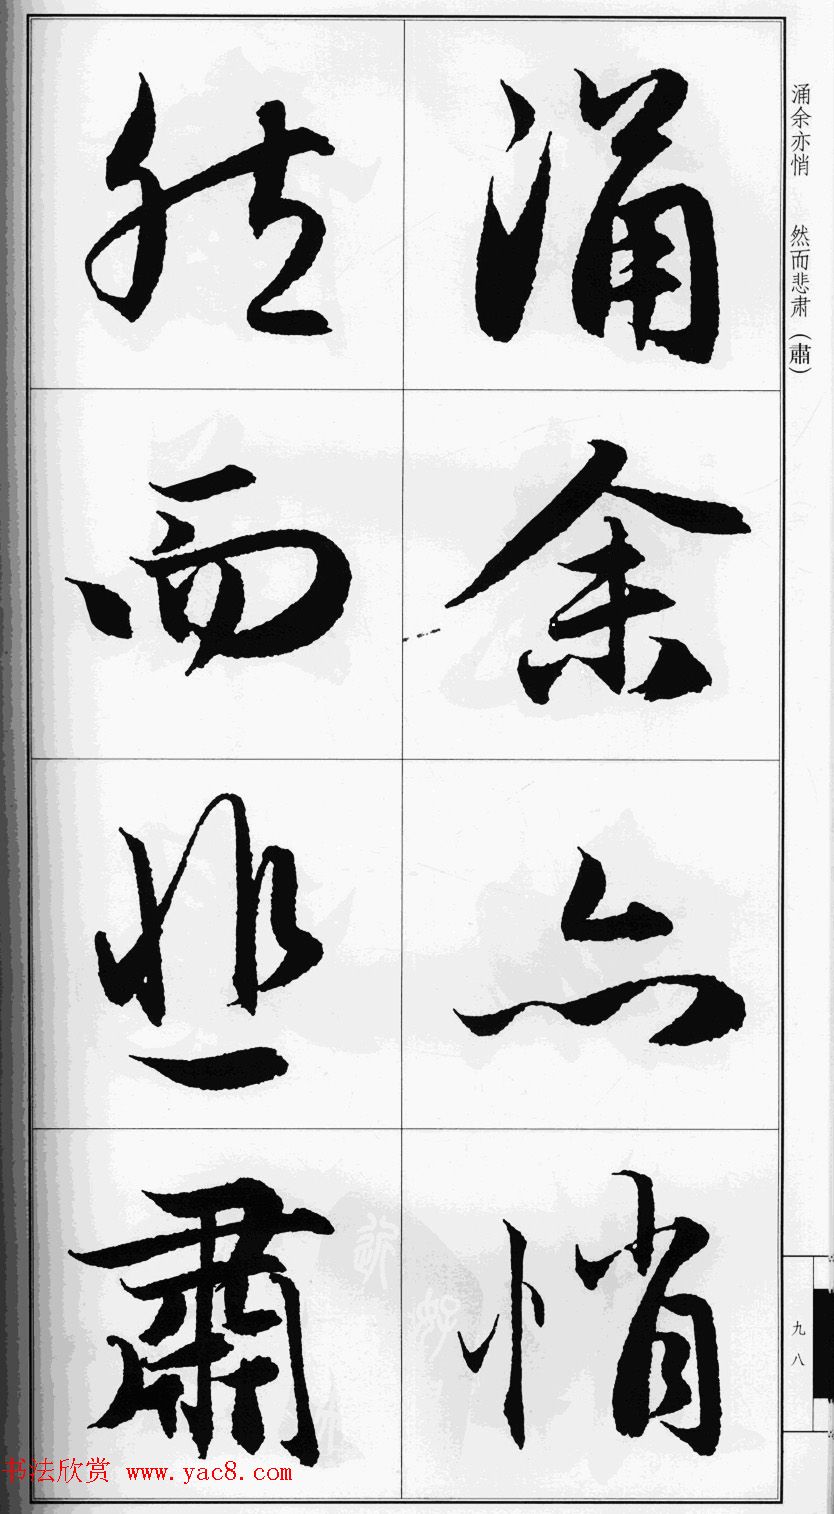 涌余亦悄
然而悲肅
涌余亦悄 然而悲肃（肅）
九八
书法欣赏 www.yac8.com